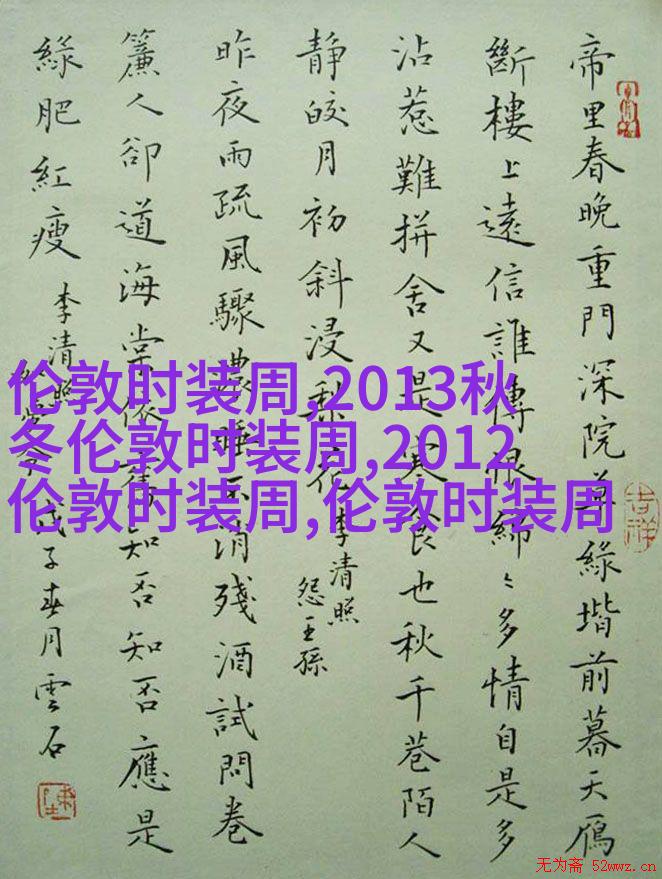 帝里春晚重門深院草緑堦前暮天鴈
斷樓上遠信誰傳恨綿〻多情自是多
沾惹難拼舍又是寒食也秋千巷陌人
静皎月初斜浸梨花 李清照
怨王孫
昨夜雨疏風驟濃睡不消殘酒試問卷
簾人卻道海棠依舊知否知否應是
緑肥紅瘦 李清照
如夢令 戊子春月雲石
吉祥
伦敦时装周,2013秋
冬伦敦时装周,2012
伦敦时装周,伦敦时装周
无为斋 52wwz.cn